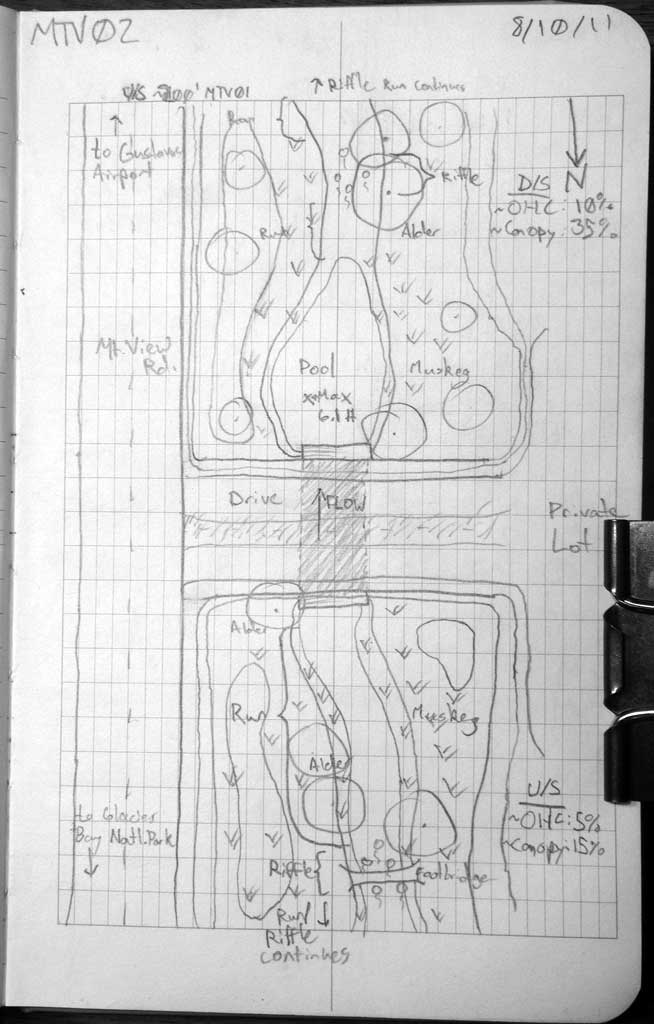 MTV02
8/10/11
U/S ~200' MTV01
↑ Riffle Run continues
Run
to Gustavus
Airport
Riffle
N
D/S
~OHC: 10%
~Canopy: 35%
Run
Alder
Mt. View
Rd.
Pool
Max
6.1 ft
Muskeg
Drive
FLOW
Private
Lot
Alder
Run
Muskeg
Alder
U/S
~OHC: 5%
~Canopy: 15%
to Glacier
Bay Natl. Park
Riffle
Footbridge
Run/
Riffle
continues